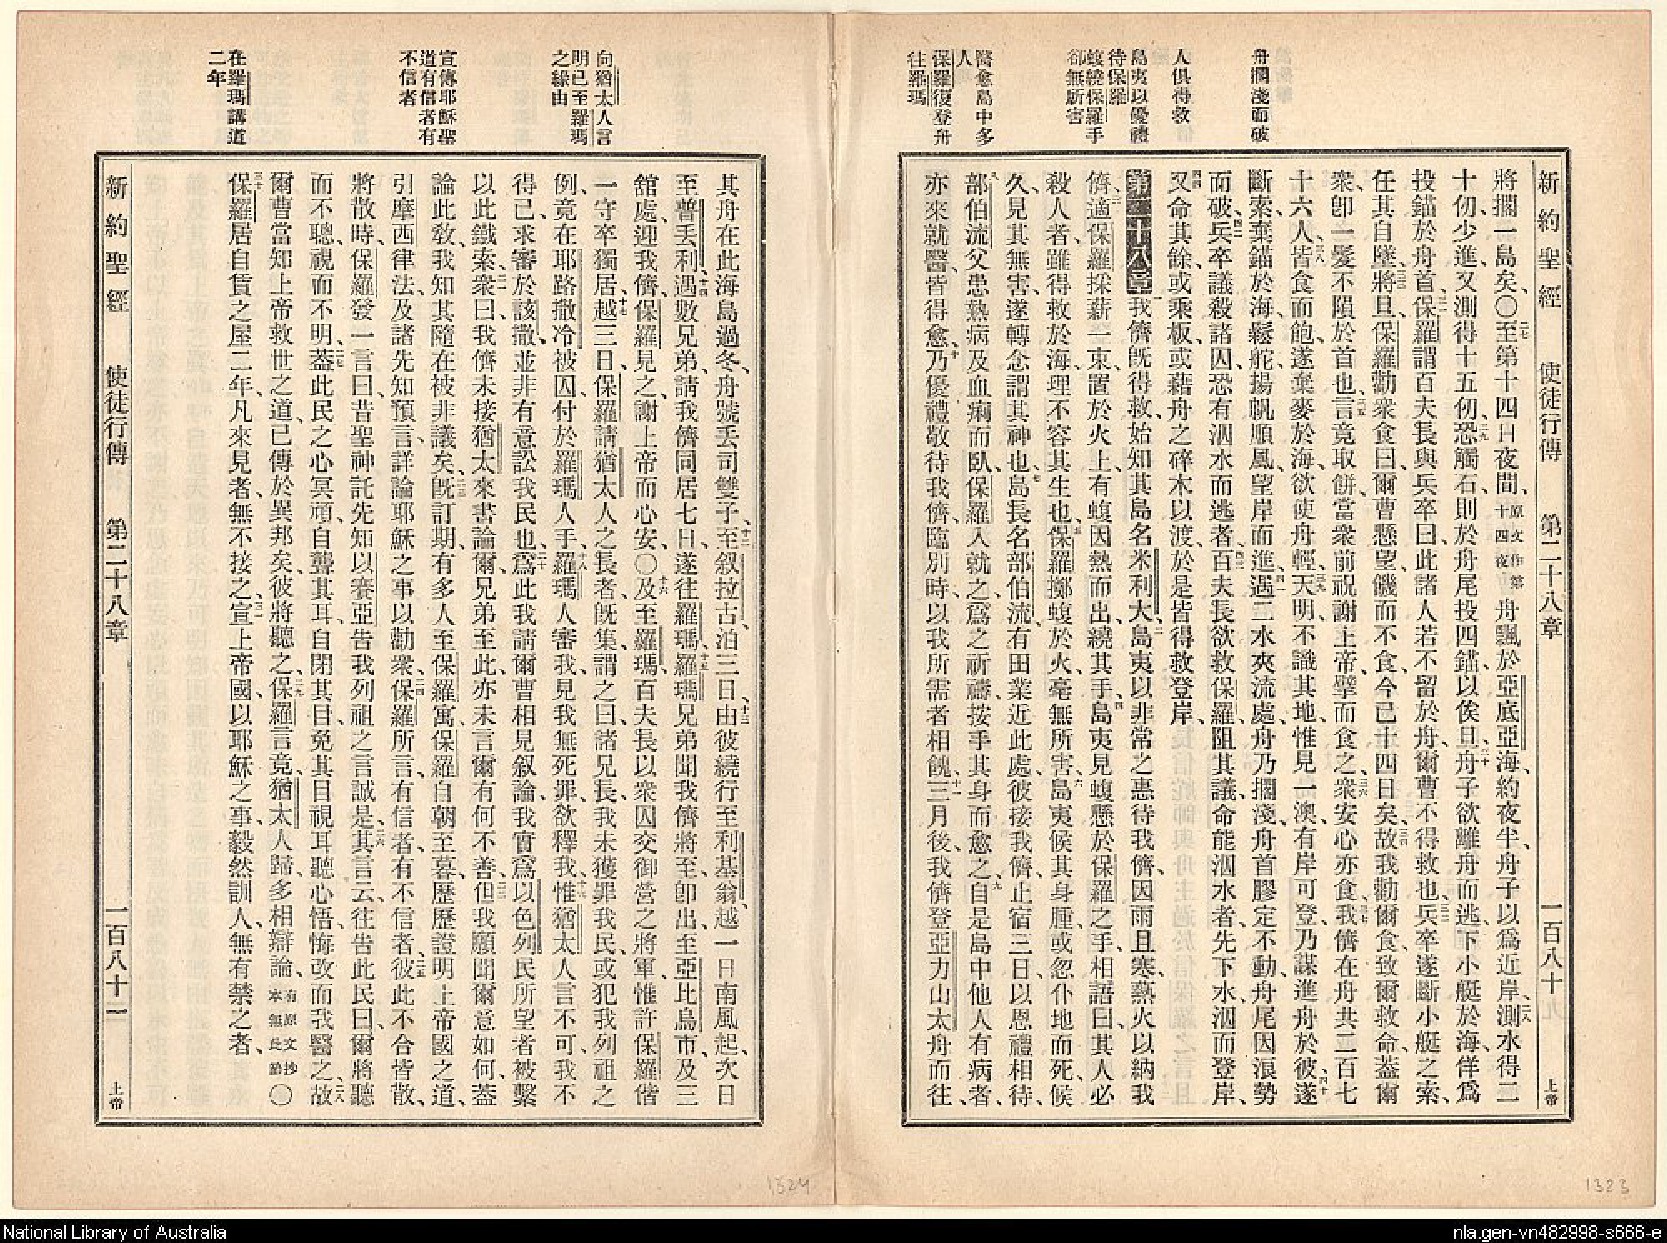 新約聖經 使徒行傳 第二十八章 一百八十 上帝
舟擱淺而破
人俱得救
島夷以優禮
待保羅
蝮繞保羅手
卻無所害
醫愈島中多
人
保羅復登舟
往羅瑪
將擱一島矣〇至第十四日夜間原文作第十四夜舟飄於亞底亞海約夜半舟子以爲近岸測水得二
十仞少進又測得十五仞恐觸石則於舟尾投四錨以俟旦舟子欲離舟而逃下小艇於海佯爲
投錨於舟首保羅謂百夫長與兵卒曰此諸人若不留於舟爾曹不得救也兵卒遂斷小艇之索
任其自墜將旦保羅勸衆食曰爾曹懸望饑而不食今已十四日矣故我勸爾食致爾救命蓋爾
衆卽一髮不隕於首也言竟取餅當衆前祝謝上帝擘而食之衆安心亦食我儕在舟共二百七
十六人皆食而飽遂棄麥於海欲使舟輕天明不識其地惟見一澳有岸可登乃謀進舟於彼遂
斷索棄錨於海鬆舵揚帆順風望岸而進遇二水夾流處舟乃擱淺舟首膠定不動舟尾因浪勢
而破兵卒議殺諸囚恐有泅水而逃者百夫長欲救保羅阻其議命能泅水者先下水泅而登岸
又命其餘或乘板或藉舟之碎木以渡於是皆得救登岸
第二十八章我儕旣得救始知其島名米利大島夷以非常之恩待我儕因雨且寒爇火以納我
儕適保羅採薪一束置於火上有蝮因熱而出繞其手島夷見蝮懸於保羅之手相語曰其人必
殺人者雖得救於海理不容其生也保羅擲蝮於火毫無所害島夷候其身腫或忽仆地而死候
久見其無害遂轉念謂其神也島長名部伯流有田業近此處彼接我儕止宿三日以恩禮相待
部伯流父患熱病及血痢而臥保羅入就之爲之祈禱按手其身而愈之自是島中他人有病者
亦來就醫皆得愈乃優禮敬待我儕臨別時以我所需者相餽三月後我儕登亞力山太舟而往
向猶太人言
明已至羅瑪
之緣由
宣傳耶穌聖
道有信者有
不信者
在羅瑪講道
二年
其舟在此海島過冬舟號丟司雙子至叙拉古泊三日由彼繞行至利基翁越一日南風起次日
至普丟利遇數兄弟請我儕同居七日遂往羅瑪羅瑪兄弟聞我儕將至卽出至亞比烏市及三
舘處迎我儕保羅見之謝上帝而心安〇及至羅瑪百夫長以衆囚交御營之將軍惟許保羅偕
一守卒獨居越三日保羅請猶太人之長者旣集謂之曰諸兄長我未獲罪我民或犯我列祖之
例竟在耶路撒冷被囚付於羅瑪人手羅瑪人審我見我無死罪欲釋我惟猶太人言不可我不
得已求審於該撒並非有意訟我民也爲此我請爾曹相見叙論我實爲以色列民所望者被繫
以此鐵索衆曰我儕未接猶太來書論爾兄弟至此亦未言爾有何不善但我願聞爾意如何蓋
論此敎我知其隨在被非議矣旣訂期有多人至保羅寓保羅自朝至暮歷歷證明上帝國之道
引摩西律法及諸先知預言詳論耶穌之事以勸衆保羅所言有信者有不信者彼此不合皆散
將散時保羅發一言曰昔聖神託先知以賽亞告我列祖之言誠是其言云往告此民曰爾將聽
而不聰視而不明蓋此民之心冥頑自聾其耳自閉其目免其目視耳聽心悟悔改而我醫之故
爾曹當知上帝救世之道已傳於異邦矣彼將聽之保羅言竟猶太人歸多相辯論有原文抄本無此節〇
保羅居自賃之屋二年凡來見者無不接之宣上帝國以耶穌之事毅然訓人無有禁之者
新約聖經 使徒行傳 第二十八章 一百八十一 上帝
1324
1323
National Library of Australia
nla.gen-vn482998-s666-e